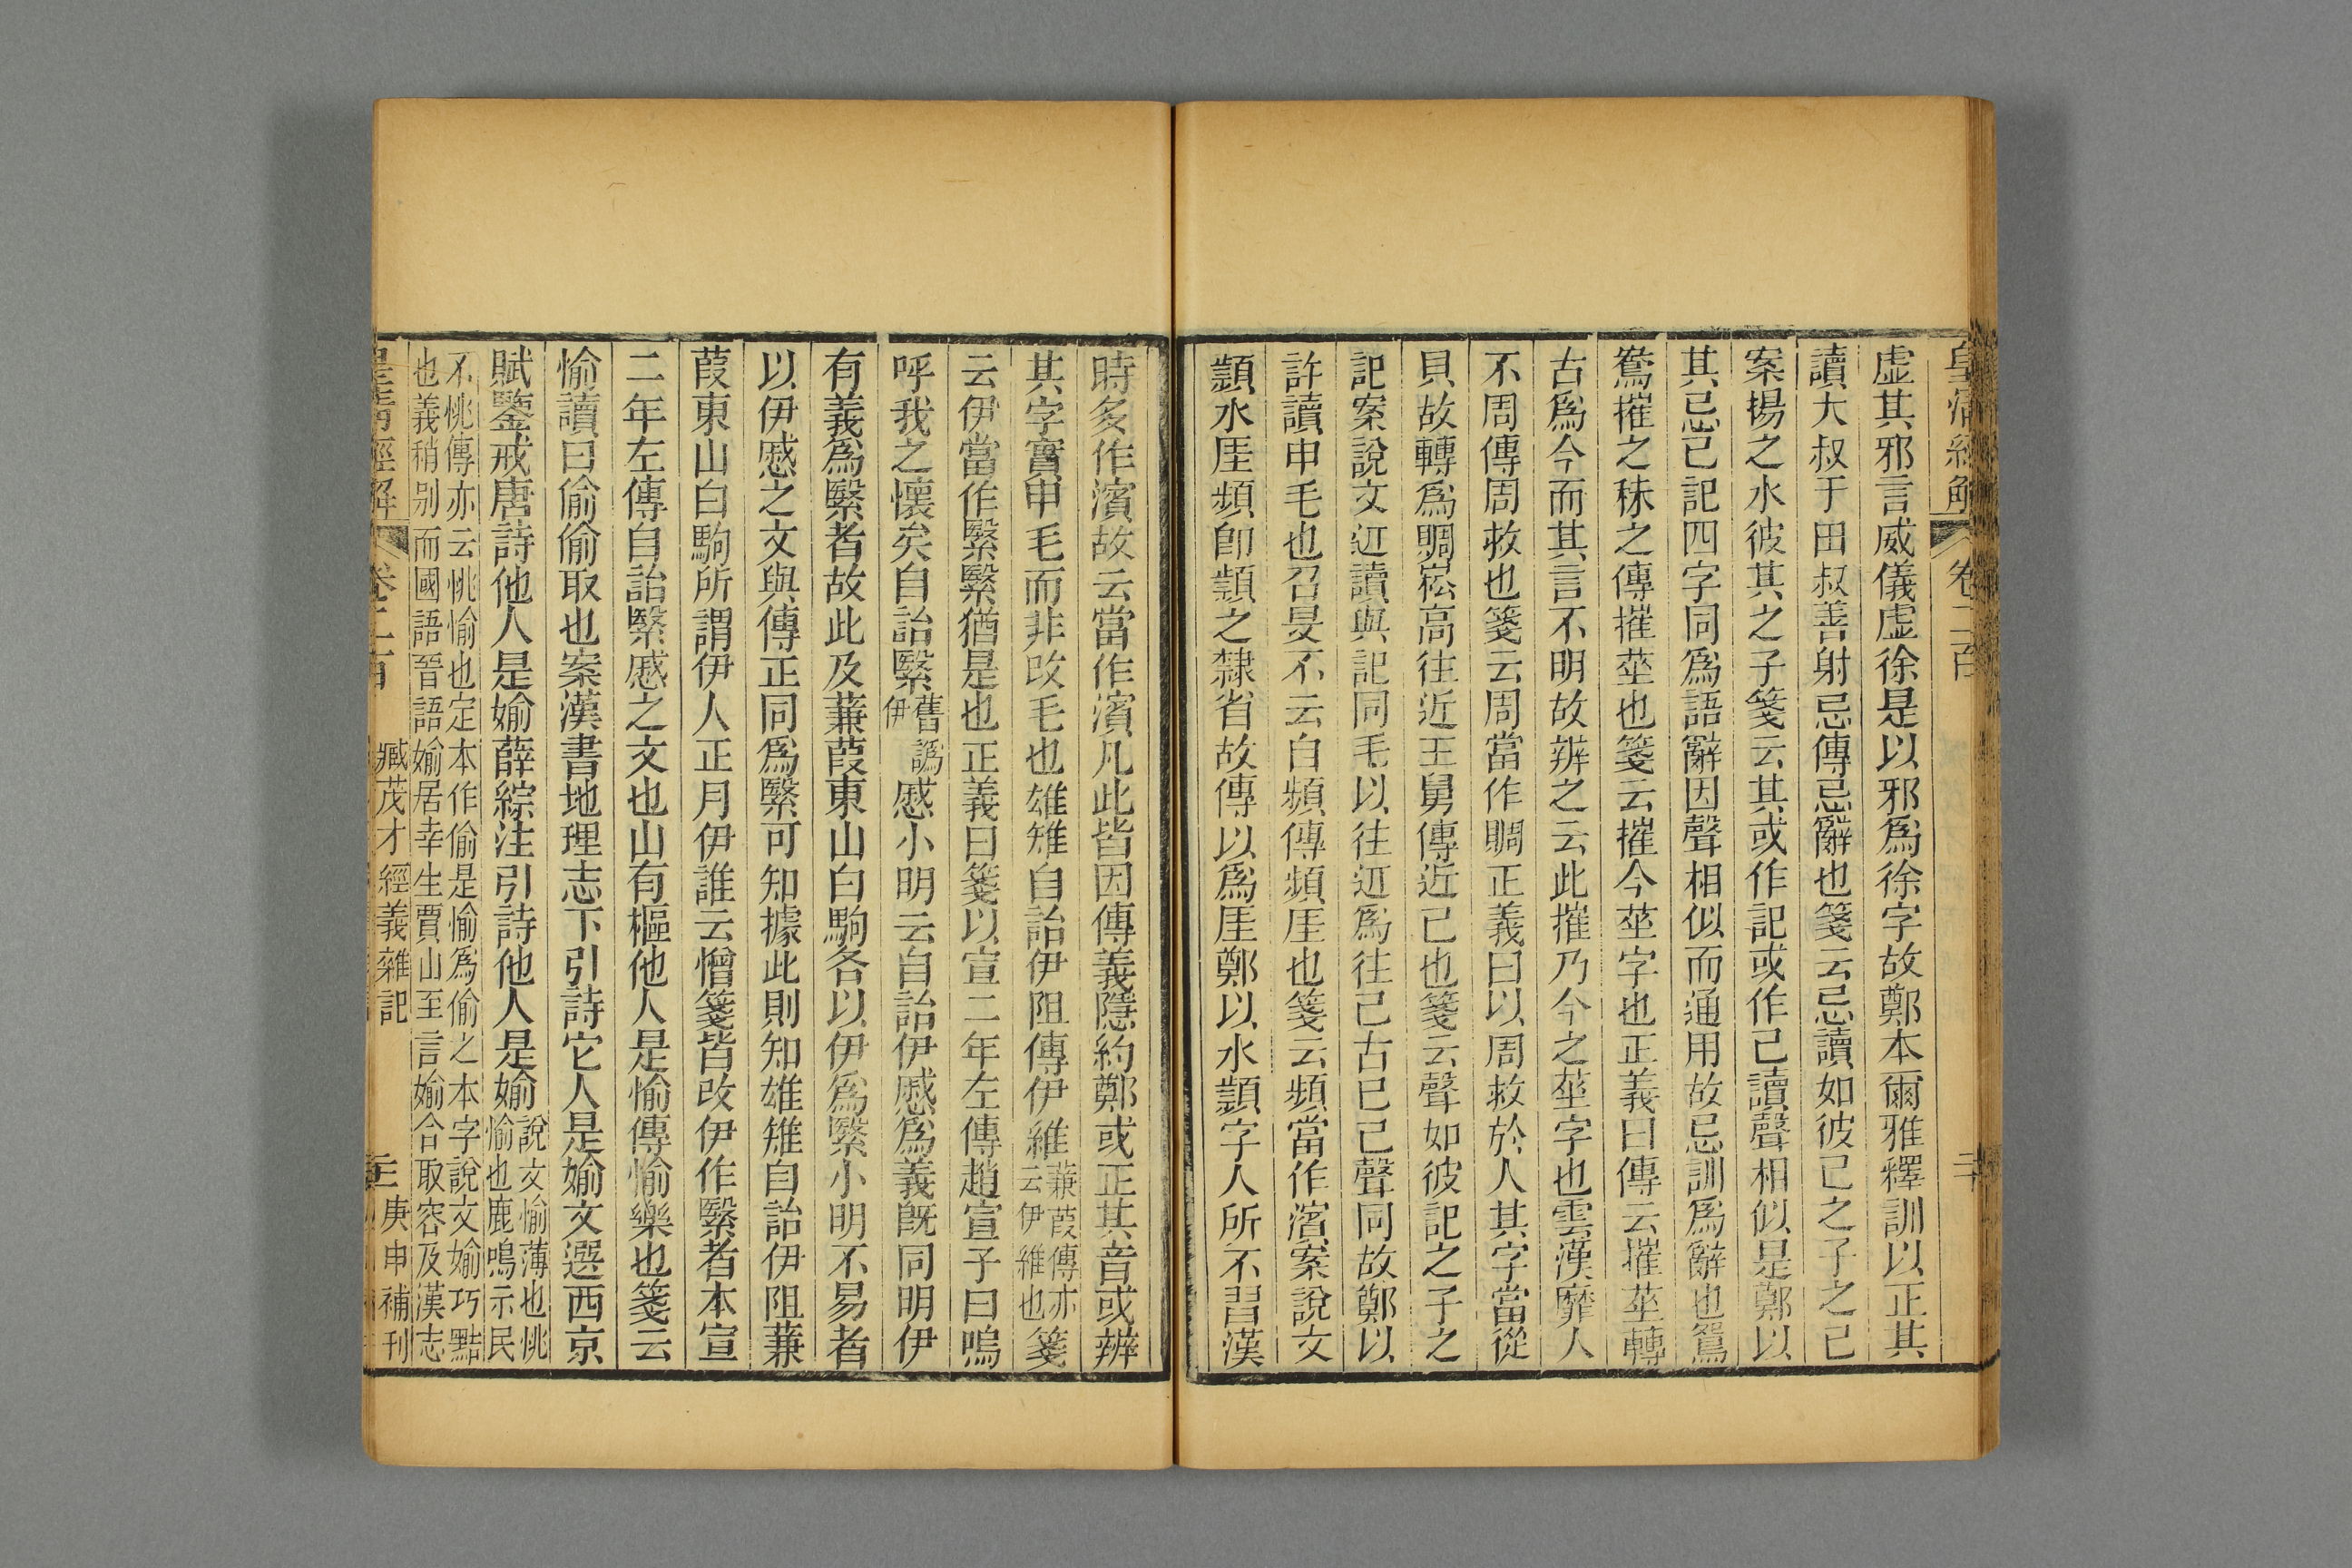 皇清經解 卷二百 二十
虛其邪言威儀虛徐是以邪爲徐字故鄭本爾雅釋訓以正其
讀大叔于田叔善射忌傳忌辭也箋云忌讀如彼已之子之已
案揚之水彼其之子箋云其或作記或作己讀聲相似是鄭以
其忌已記四字同爲語辭因聲相似而通用故忌訓爲辭也鴛
鴦摧之秣之傳摧莝也箋云摧今莝字也正義曰傳云摧莝轉
古爲今而其言不明故辨之云此摧乃今之莝字也雲漢靡人
不周傳周救也箋云周當作賙正義曰以周救於人其字當從
貝故轉爲賙崧高往近王舅傳近已也箋云聲如彼記之子之
記案說文䢋讀與記同毛以往䢋爲往己古已己聲同故鄭以
許讀申毛也召旻不云自頻傳頻厓也箋云頻當作濱案說文
顰水厓頻卽顰之隸省故傳以爲厓鄭以水顰字人所不習漢
時多作濱故云當作濱凡此皆因傳義隱約鄭或正其音或辨
其字實申毛而非改毛也雄雉自詒伊阻傳伊維蒹葭傳亦云伊維也箋
云伊當作繄繄猶是也正義曰箋以宣二年左傳趙宣子曰嗚
呼我之懷矣自詒繄舊譌伊慼小明云自詒伊慼爲義旣同明伊
有義爲繄者故此及蒹葭東山白駒各以伊爲繄小明不易者
以伊慼之文與傳正同爲繄可知據此則知雄雉自詒伊阻蒹
葭東山白駒所謂伊人正月伊誰云憎箋皆改伊作繄者本宣
二年左傳自詒繄慼之文也山有樞他人是愉傳愉樂也箋云
愉讀曰偷偷取也案漢書地理志下引詩它人是媮文選西京
賦鑒戒唐詩他人是媮薛綜注引詩他人是媮說文愉薄也恌愉也鹿鳴示民
不恌傳亦云恌愉也定本作偷是愉爲偷之本字說文媮巧黠
也義稍別而國語晉語媮居幸生賈山至言媮合取容及漢志
皇清經解 卷二百 臧茂才經義雜記 二十 庚申補刊